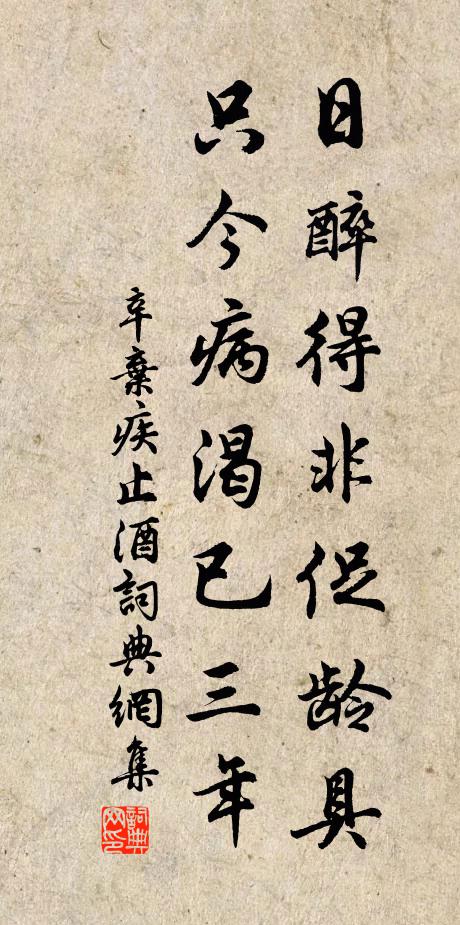 日醉得非促龄具
只今病渴已三年
辛棄疾止酒詞典網集
詞典网印